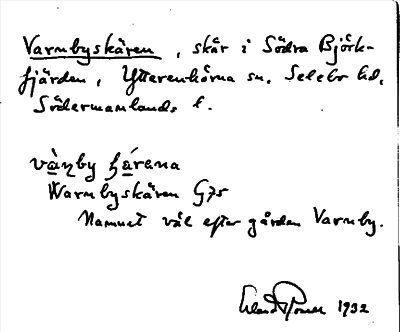 Varnbyskären, skär i Södra Björk-
fjärden, Ytterenhörna sn, Selebo hd,
Södermanlands l.
vànby hárena
Warnbyskären G75
Namnet väl efter gården Varnby.
1932